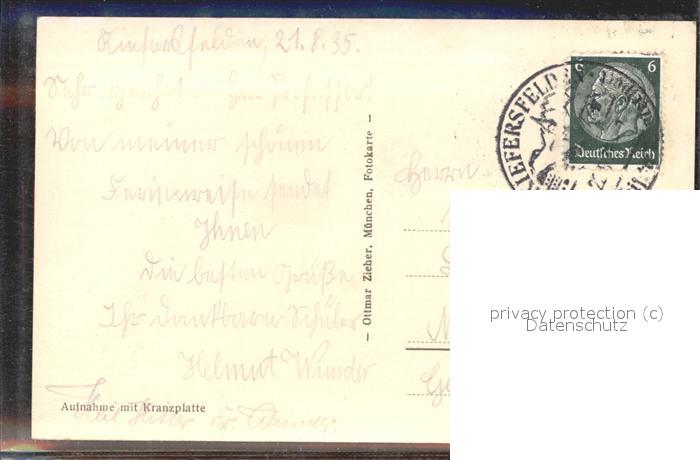 Kiefersfelden, 21.8.35.
Sehr geehrter Herr Professor!
Von meiner schönen
Ferienreise sendet
Ihnen
die besten Grüße
Ihr dankbarer Schüler
Helmut Wunder
Heil Hitler
Aufnahme mit Kranzplatte
— Ottmar Zieher, München, Fotokarte —
Herrn
KIEFERSFELD
6 6
Deutsches Reich
privacy protection (c)
Datenschutz